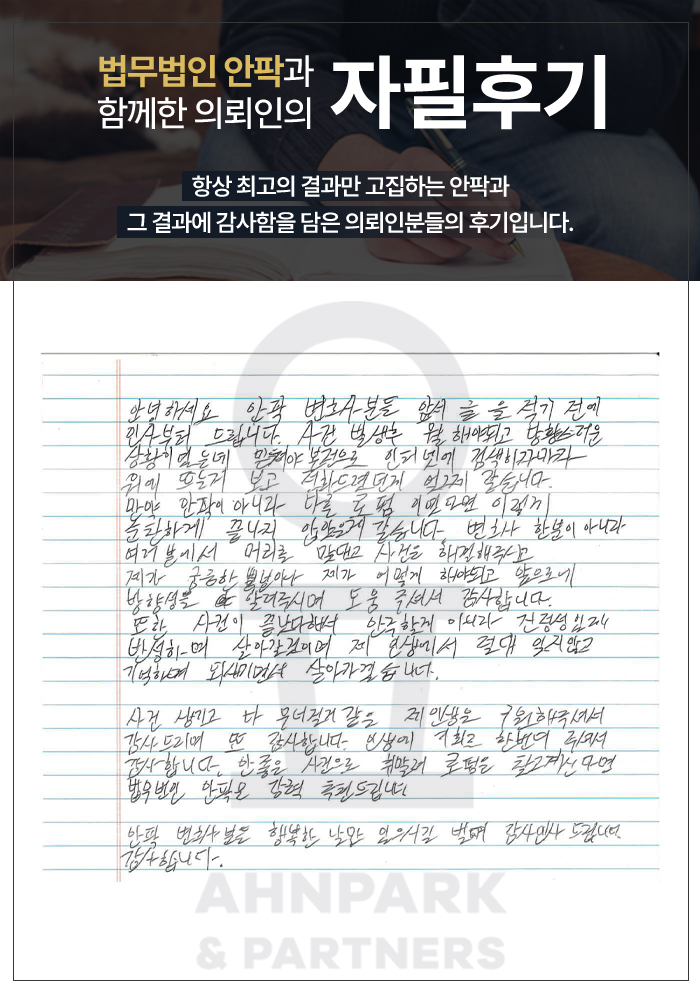 법무법인 안팍과
함께한 의뢰인의
자필후기
항상 최고의 결과만 고집하는 안팍과
그 결과에 감사함을 담은 의뢰인분들의 후기입니다.
안녕하세요 안팍 변호사분들 앞서 글을 적기 전에
인사부터 드립니다. 사건 발생후 뭘 해야되고 당황스러운
상황이였는데 인터넷에 검색하자마자
위에 뜨는거 보고 전화드렸던게 엊그제 같습니다.
만약 안팍이 아니라 다른 로펌 이였다면 이렇게
순탄하게 끝나지 않았을거 같습니다. 변호사 한분이 아니라
여러 분에서 머리를 맞대고 사건을 해결해주시고
제가 궁금한 제가 어떻게 해야되고 앞으로에
방향성을 알려주시며 도움 주셔서 감사합니다.
또한 사건이 끝났다해서 안주할게 아니라 진정성있게
반성하며 살아갈것이며 제 인생에서 절대 잊지않고
기억하며 되새기면서 살아가겠습니다.
사건 생기고 다 무너질거 같은 제 인생을 구원해주셔서
감사드리며 또 감사합니다. 인생에 기회를 한번더 주셔서
감사합니다. 안좋은 사건으로 휘말려 로펌을 찾고계신다면
법무법인 안팍을 강력 추천드립니다
안팍 변호사분들 행복한 날만 있으시길 빌며 감사인사 드립니다.
감사합니다.
AHNPARK
& PARTNERS